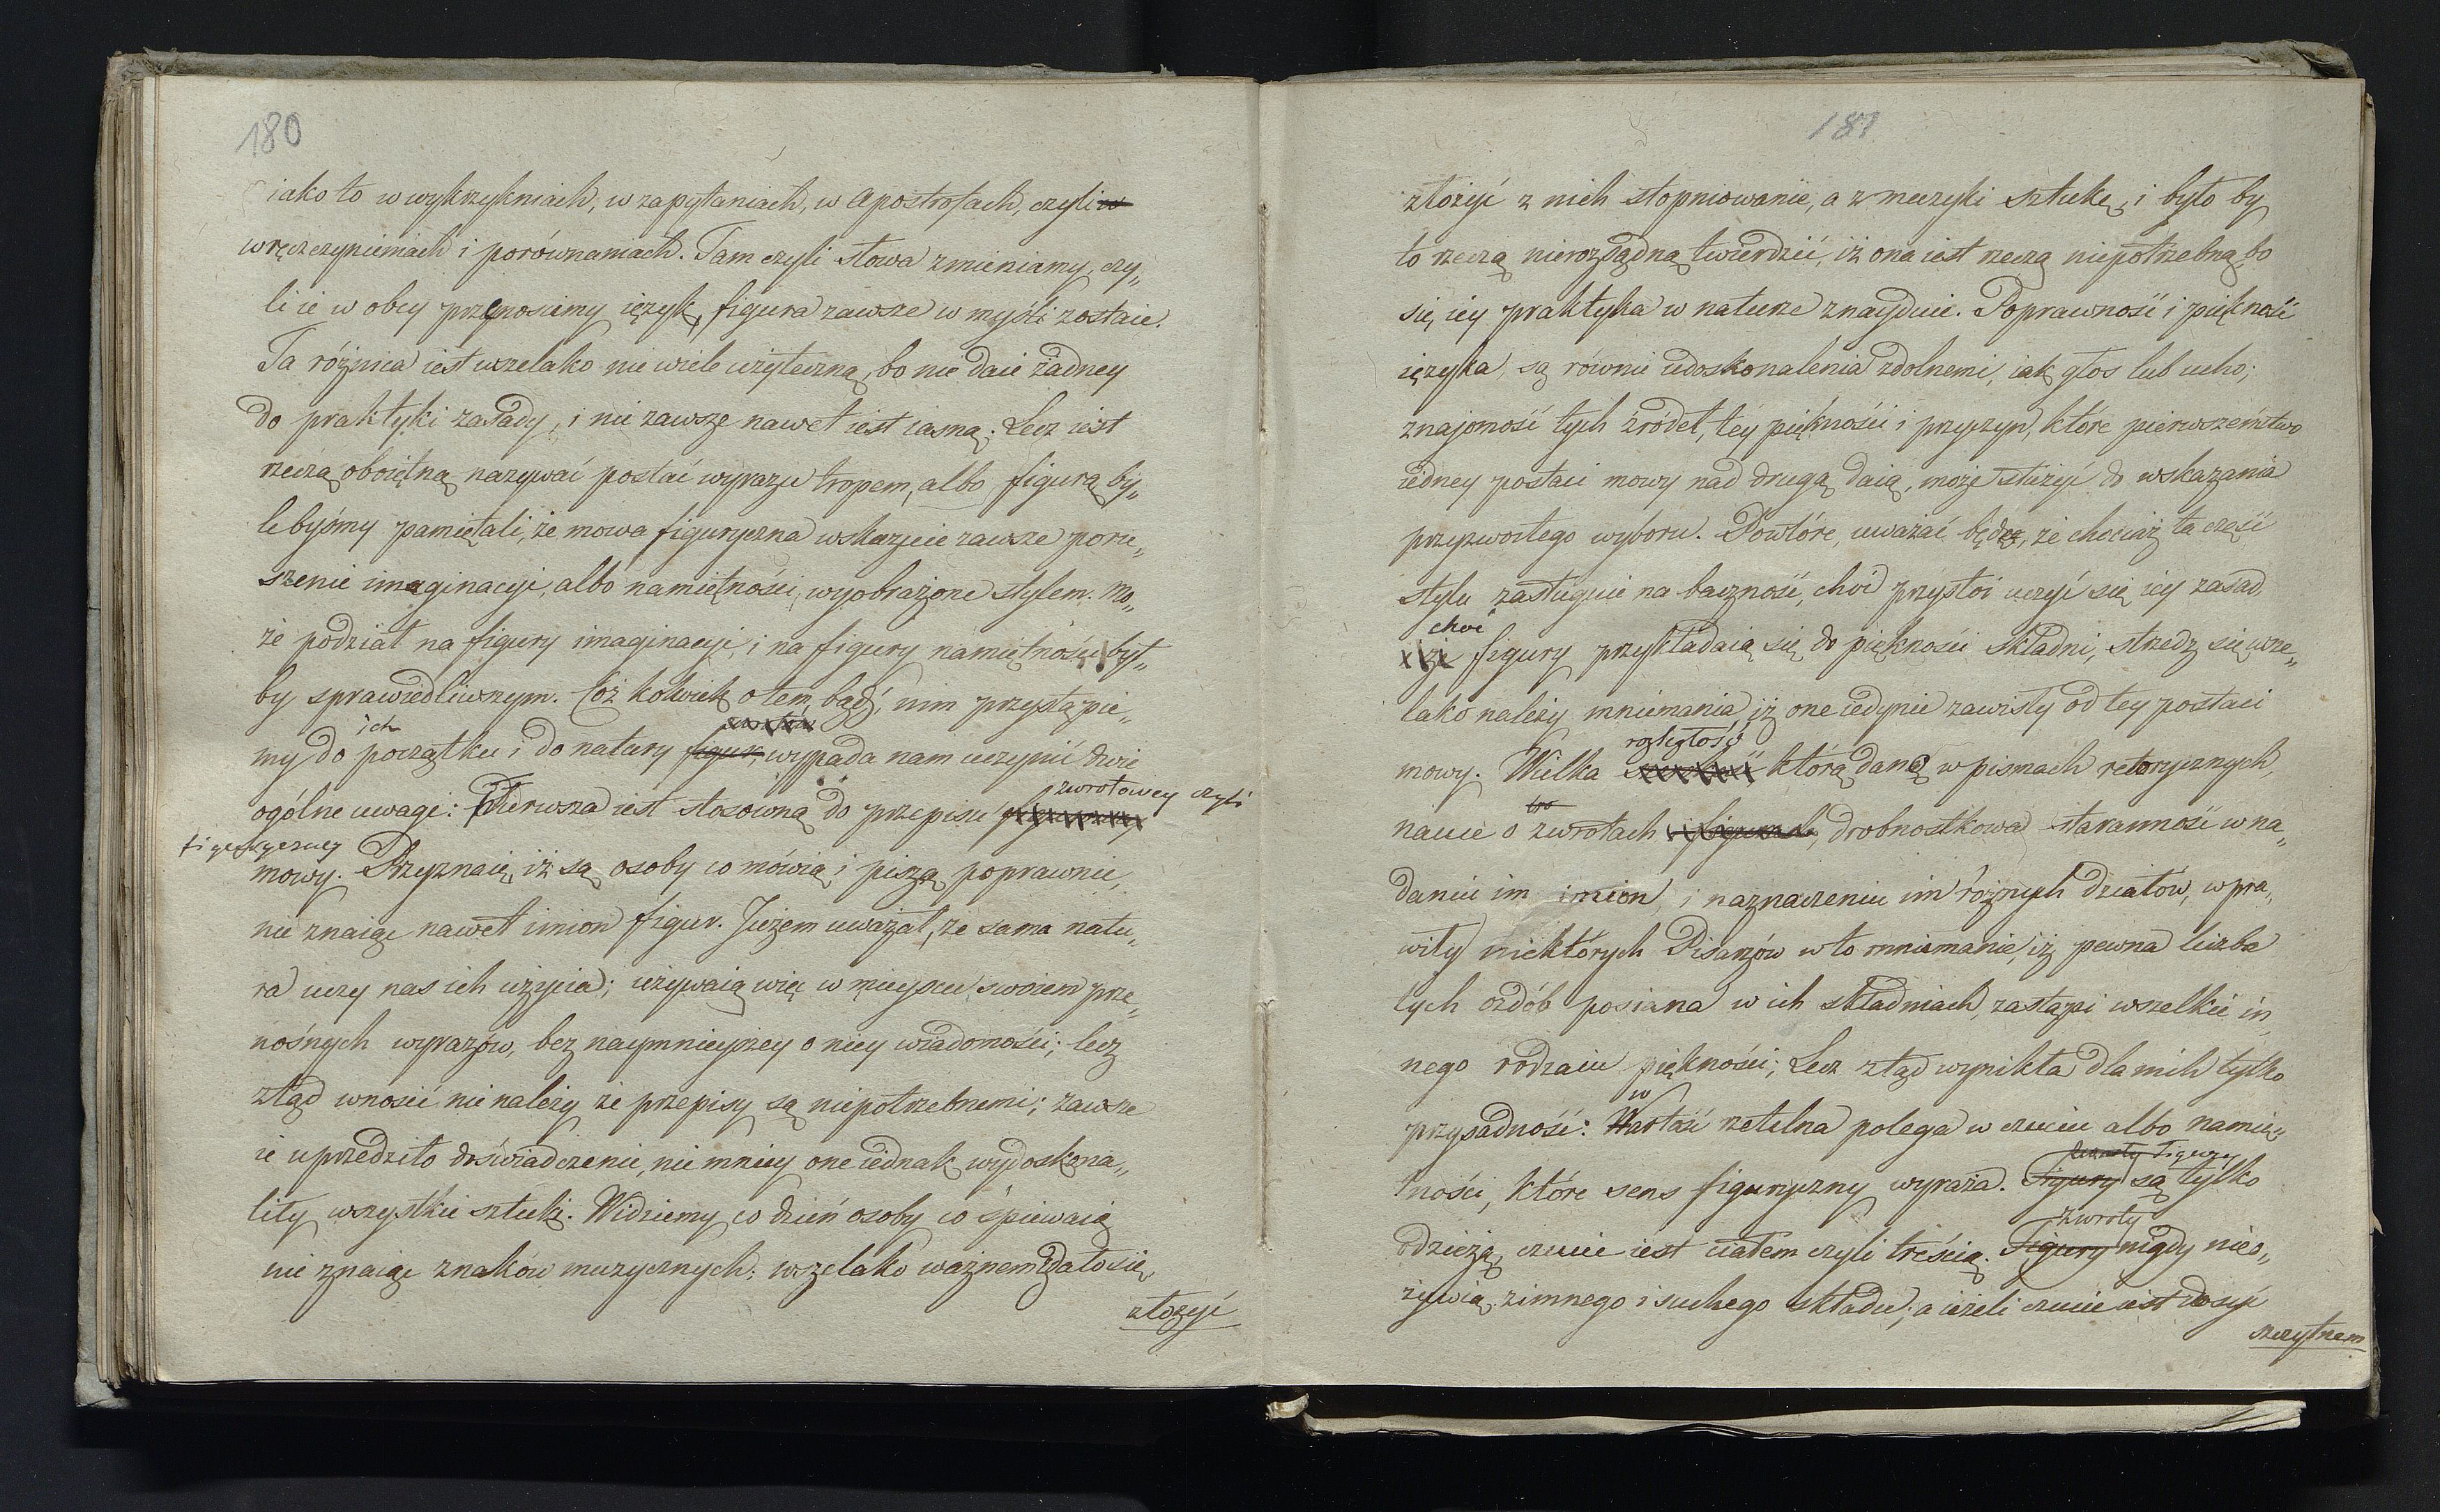 180
iako to w wykrzykniach, w zapytaniach, w apostrofach, czyli w
wręczczynieniach i porównaniach. Tam czyli słowa zmieniamy, czy„
li ie w obcy przenosimy ięzyk, figura zawsze w myśli zostaie.
Ta różnica iest wszelako nie wiele użyteczną, bo nie daie żadney
do praktyki zasady, i nie zawsze nawet iest iasną; Lecz iest
rzeczą oboiętną nazywać postać wyrazu tropem, albo figurą by„
lebyśmy pamiętali, że mowa figuryczna wskazuie zawsze poru„
szenie imaginacyi, albo namiętności, wyobrażone stylem: Mo„
że podział na figury imaginacyi, i na figury namiętności był„
by sprawiedliwszym. Cóż kolwiek o tem bądź, nim przystąpie„
ich
my do początku i do natury figur, wypada nam uczynić dwie
zwrotowey czyli
ogólne uwagi: Pierwsza iest stosowną do przepisu
figuryczney
mowy. Przyznaię, iż są osoby co mówią i piszą poprawnie,
nie znaiąc nawet imion figur. Jużem uważał, że sama natu„
ra uczy nas ich użycia; używaią więc w mieyscu swoiem prze„
nośnych wyrazów, bez naymnieyszey o niey wiadomości; lecz
ztąd wnosić nie należy że przepisy są niepotrzebnemi; zawsze
ie uprzedziło doświadczenie, nie mniey one iednak wydoskona„
liły wszystkie sztuki. Widziemy co dzień osoby co śpiewaią
nie znaiąc znaków muzycznych; wszelako ważnem zdało się
złożyć
181
złożyć z nich stopniowanie, a z muzyki sztukę, i było by
to rzeczą nierozsądną twierdzić, iż ona iest rzeczą niepotrzebną, bo
się iey praktyka w naturze znayduie. Poprawność i piękność
ięzyka, są równie udoskonalenia zdolnemi, iak głos lub ucho;
znajomość tych źródeł, tey piękności i przyczyn, które pierwszeństwo
iedney postaci mowy nad drugą daią, może służyć do wskazania
przyzwoitego wyboru. Powtóre, uważać będę, że chociaż ta część
stylu zasługuie na baczność, choć przystoi uczyć się iey zasad,
choć
że figury przykładaią się do piękności składni, strzedz się wsze„
lako należy mniemania, iż one iedynie zawisły od tey postaci
rozległość
mowy. Wielka którą daną w pismach retorycznych,
nauce o zwrotach i figurach, drobnostkowa staranność w na„
daniu im imion, i naznaczeniu im różnych działów, wpra„
wiły niektórych Pisarzów w to mniemanie, iż pewna liczba
tych ozdób posiana w ich składniach, zastąpi wszelkie in„
nego rodzaiu piękności; Lecz ztąd wynikła dla nich tylko
w
przysadność: Wartość rzetelna polega w czuciu albo namię„
zwroty figury
tności, które sens figuryczny wyraża. Figury są tylko
zwroty
odzieżą, czucie iest ciałem czyli treścią. Figury nigdy nieo„
żywią zimnego i suchego składu; a ieżeli czucie iest dosyć
szczytnem